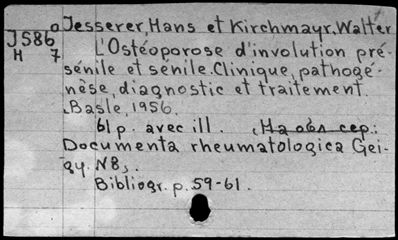 Jesserer, Hans et Kirchmayr, Walter
J586
H 7
L'Ostéoporose d'involution pré-
sénile et sénile. Clinique, pathogé-
nèse, diagnostic et traitement.
Basle, 1956.
61 p. avec ill. (На обл сер.:
Documenta rheumatologica Gei-
gy. N8).
Bibliogr. p. 59-61.